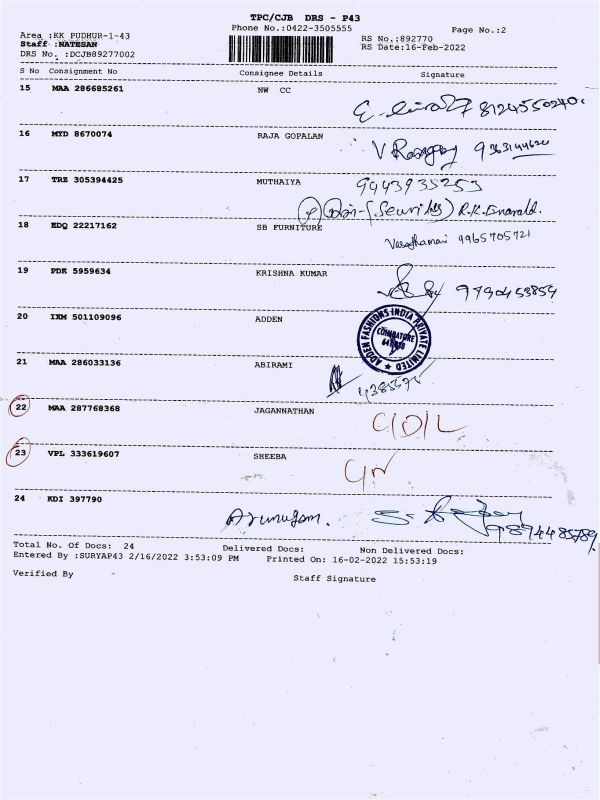 TPC/CJB DRS - P43
Phone No.:0422-3505555
Page No.:2
Area :KK PUDHUR-1-43
RS No.:892770
Staff :NATESAN
RS Date:16-Feb-2022
DRS No. :DCJB89277002
S No Consignment No Consignee Details Signature
15 MAA 286685261 NW CC
8124550240
16 MYD 8670074 RAJA GOPALAN
V Rajagopal 9363144620
17 TRZ 305394425 MUTHAIYA
9943935253
(Security) R.K. Emerald.
18 EDQ 22217162 SB FURNITURE
9965705721
19 PDK 5959634 KRISHNA KUMAR
9790453854
20 IXM 501109096 ADDEN
ADDEN FASHIONS INDIA PRIVATE LIMITED
COIMBATORE
21 MAA 286033136 ABIRAMI
22 MAA 287768368 JAGANNATHAN
C/D/L
23 VPL 333619607 SHEEBA
24 KDI 397790
Arumugam.
9874485789
Total No. Of Docs: 24 Delivered Docs: Non Delivered Docs:
Entered By :SURYAP43 2/16/2022 3:53:09 PM Printed On: 16-02-2022 15:53:19
Verified By Staff Signature